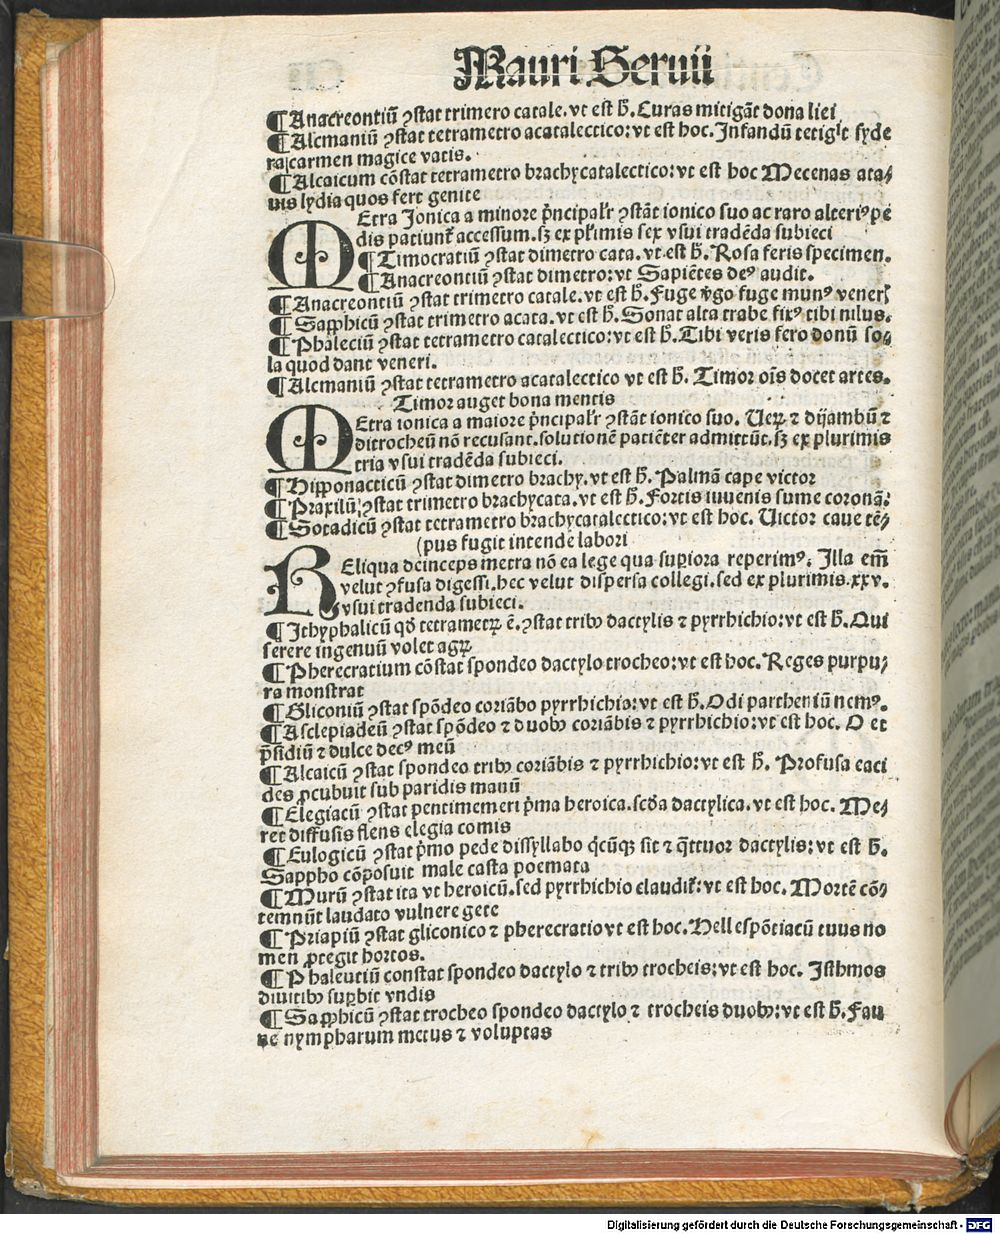 Mauri Seruii
¶Anacreontiū ꝯstat trimero catale. vt est h̄. Curas mitigāt dona liei
¶Alcmaniū ꝯstat tetrametro acatalectico: vt est hoc. Infandū tetigit syde
ra carmen magice vatis.
¶Alcaicum cōstat tetrametro brachycatalectico: vt est hoc Mecenas ata⸗
uis lydia quos fert genite
MEtra Ionica a minore p̄ncipalr̄ ꝯstāt ionico suo ac raro alteriꝰ pe
dis patiunt᷑ accessum. sꝫ ex plr̄imis sex vsui tradēda subieci
¶Timocratiū ꝯstat dimetro cata. vt est h̄. Rosa feris specimen.
¶Anacreontiū ꝯstat dimetro: vt Sapiētes deꝰ audit.
¶Anacreontiū ꝯstat trimetro catale. vt est h̄. Fuge v̄go fuge munꝰ veneris
¶Sapphicū ꝯstat trimetro acata. vt est h̄. Sonat alta trabe fixꝰ tibi nilus.
¶Phaleciū ꝯstat tetrametro catalectico: vt est h̄. Tibi veris fero donū so⸗
la quod dant veneri.
¶Alcmaniū ꝯstat tetrametro acatalectico vt est h̄. Timor oīs docet artes.
Timor auget bona mentis
MEtra ionica a maiore p̄ncipalr̄ ꝯstāt ionico suo. Ueꝝ ⁊ dijambū ⁊
ditrocheū nō recusant. solutionē patiēter admittūt. sꝫ ex plurimis
tria vsui tradēda subieci.
¶Hipponacticū ꝯstat dimetro brachy. vt est h̄. Palmā cape victor
¶Praxilū; ꝯstat trimetro brachycata. vt est h̄. Fortis iuuenis sume coronā:
¶Sotadicū ꝯstat tetrametro brachycatalectico: vt est hoc. Uictor caue tē⸗
(pus fugit intende labori
REliqua deinceps metra nō ea lege qua superiora reperimꝰ. Illa em̄
velut ꝯfusa digessi. hec velut dispersa collegi. sed ex plurimis. xxv.
vsui tradenda subieci.
¶Ithyphalicū qđ tetrametꝝ ē. ꝯstat tribꝰ dactylis ⁊ pyrrhichio: vt est h̄. Qui
serere ingenuū volet agꝝ
¶Pherecratium cōstat spondeo dactylo trocheo: vt est hoc. Reges purpu⸗
ra monstrat
¶Gliconiū ꝯstat spōdeo coriābo pyrrhichio: vt est h̄. Odi partheniū nemꝰ.
¶Asclepiadeū ꝯstat spōdeo ⁊ duobꝰ coriābis ⁊ pyrrhichio: vt est hoc. O et
p̄sidiū ⁊ dulce decꝰ meū
¶Alcaicū ꝯstat spondeo tribꝰ coriābis ⁊ pyrrhichio: vt est h̄. Profusa eaci
des ꝓcubuit sub paridis manū
¶Elegiacū ꝯstat pentimemeri p̄ma heroica. scđa dactylica. vt est hoc. Me⸗
ret diffusis flens elegia comis
¶Eulogicū ꝯstat p̄mo pede dissyllabo q̄cūqꝫ sit ⁊ q̄ttuor dactylis: vt est h̄.
Sappho cōposuit male casta poemata
¶Murū ꝯstat ita vt heroicū. sed pyrrhichio claudit᷑: vt est hoc. Mortē cō⸗
temnūt laudato vulnere gete
¶Priapiū ꝯstat gliconico ⁊ pherecratio vt est hoc. Hellespōtiacū tuus no
men ꝓtegit hortos.
¶Phaleutiū constat spondeo dactylo ⁊ tribꝰ trocheis: vt est hoc. Isthmos
diuitibꝰ suꝑbit vndis
¶Sapphicū ꝯstat trocheo spondeo dactylo ⁊ trocheis duobꝰ: vt est h̄. Fau
ne nympharum metus ⁊ voluptas
Digitalisierung gefördert durch die Deutsche Forschungsgemeinschaft - DFG